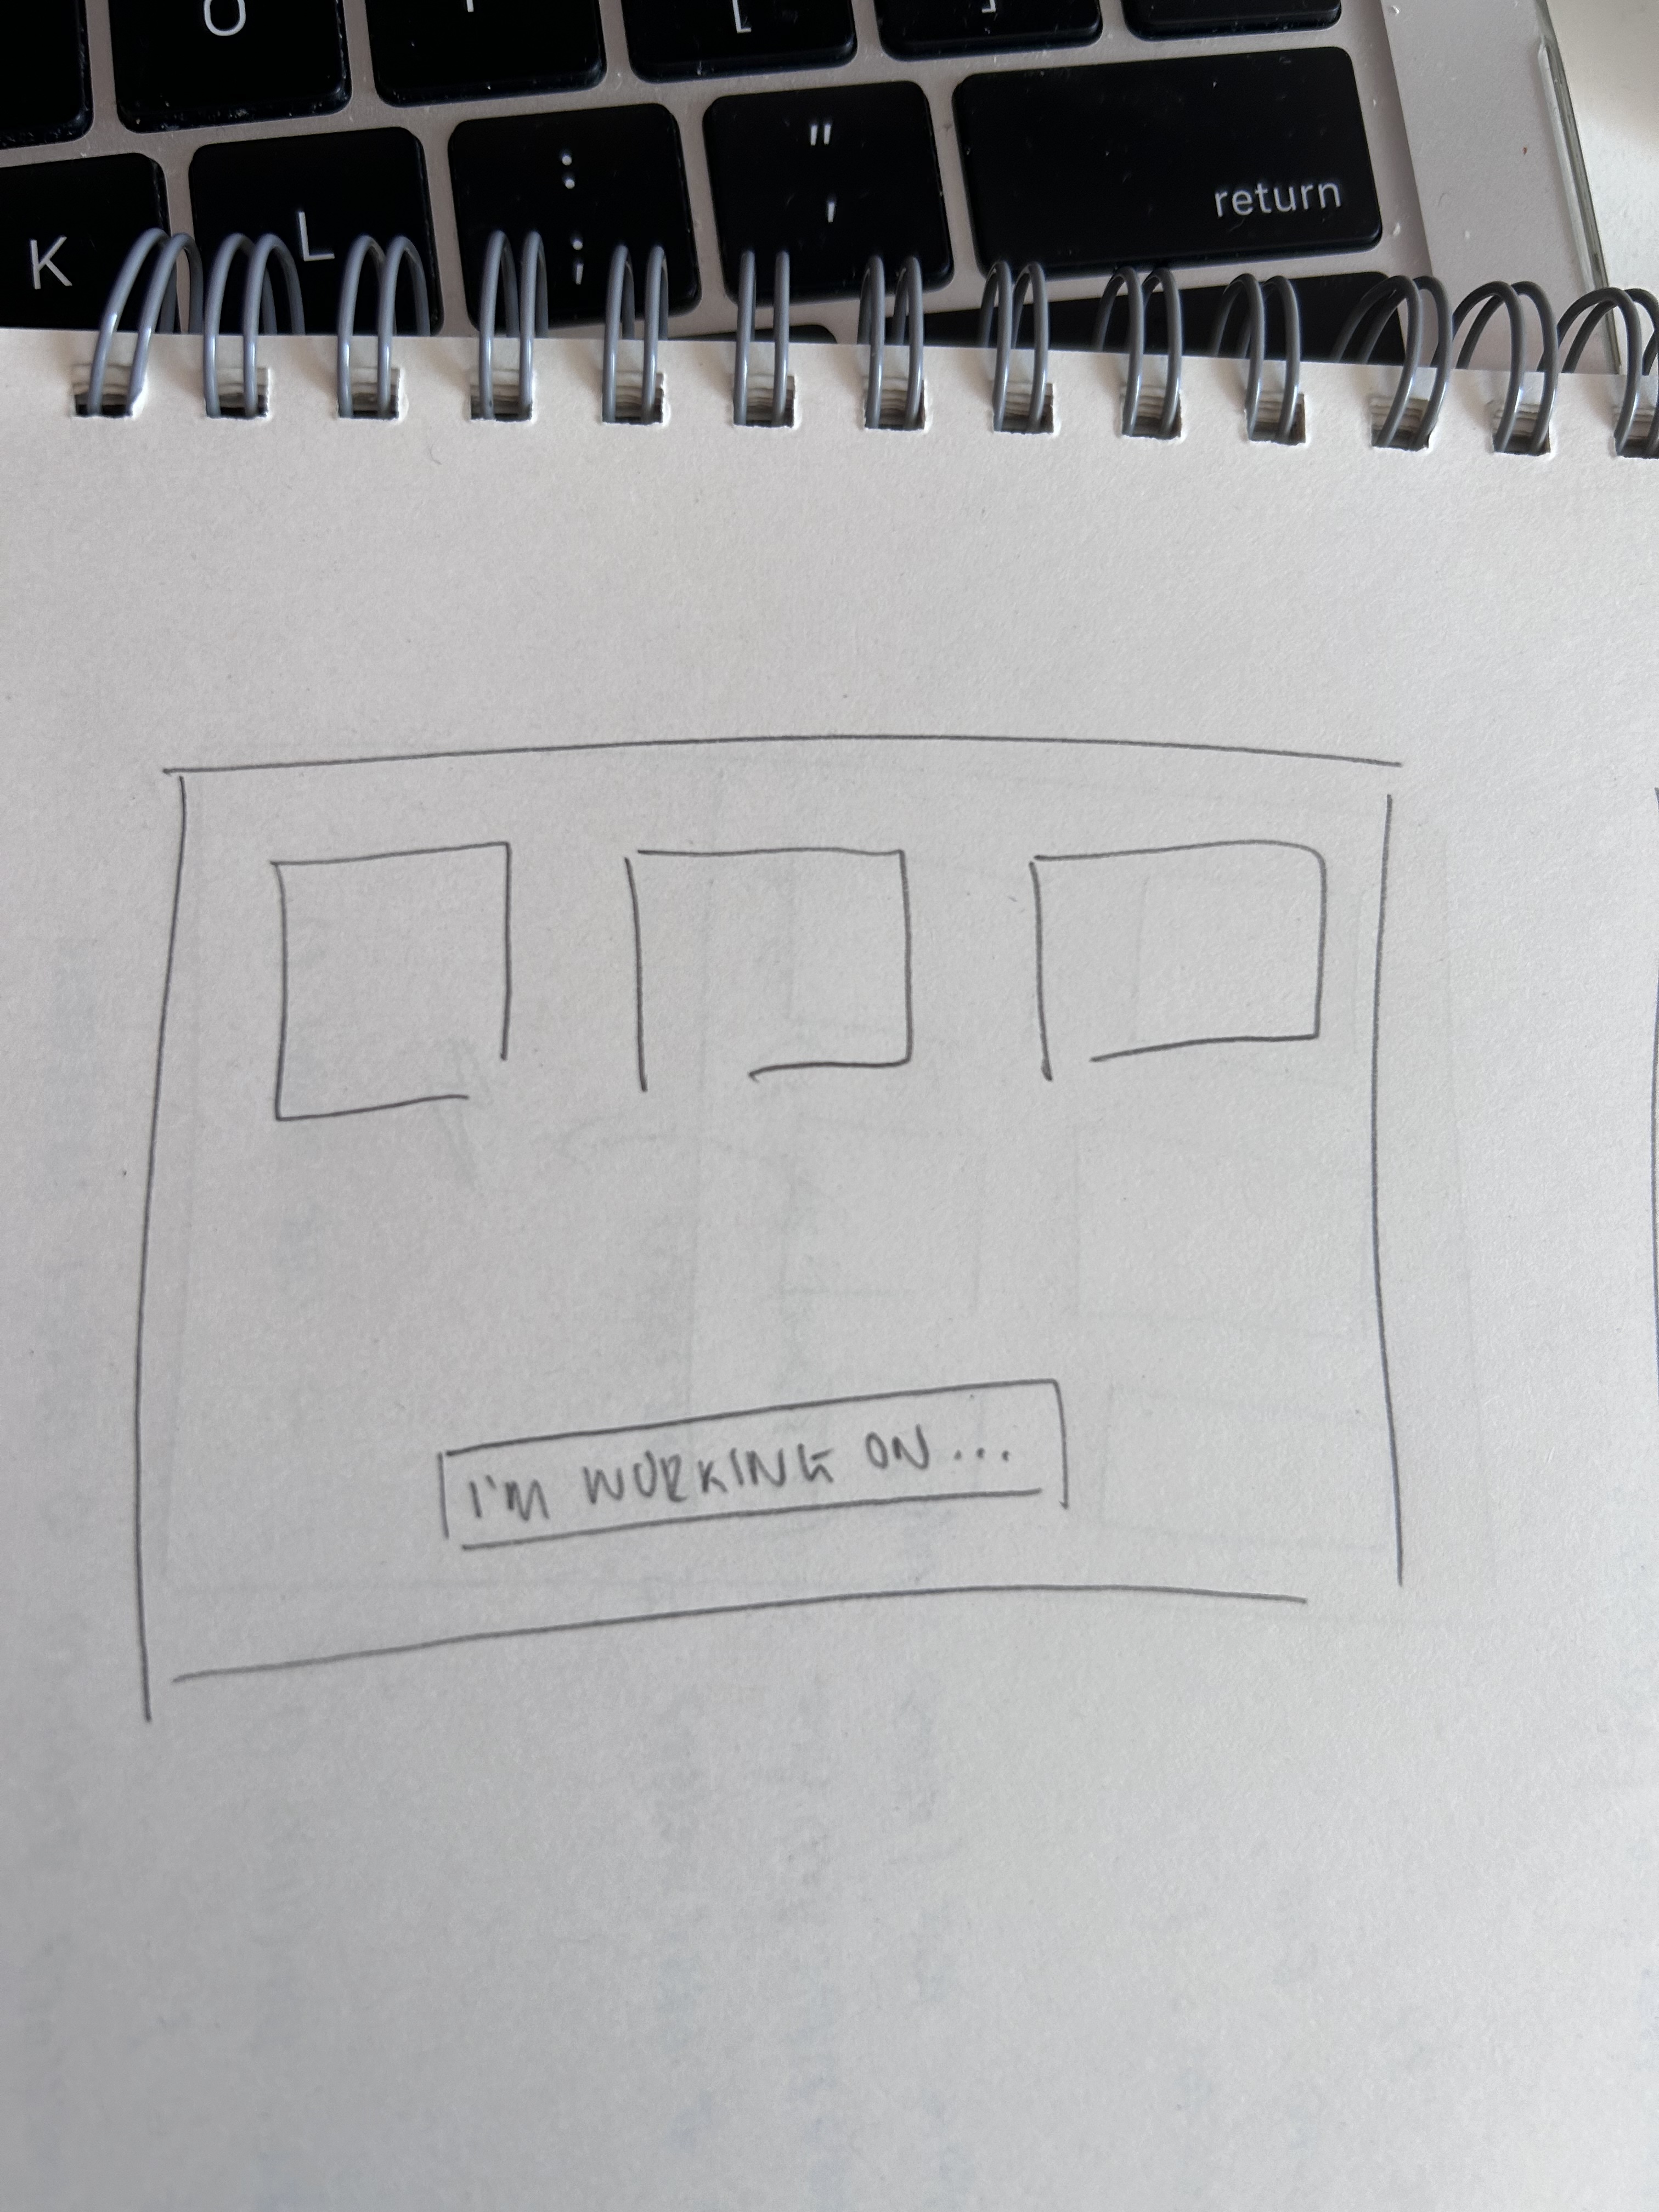 O
[
]
K
L
:
;
"
'
return
I'M WORKING ON...